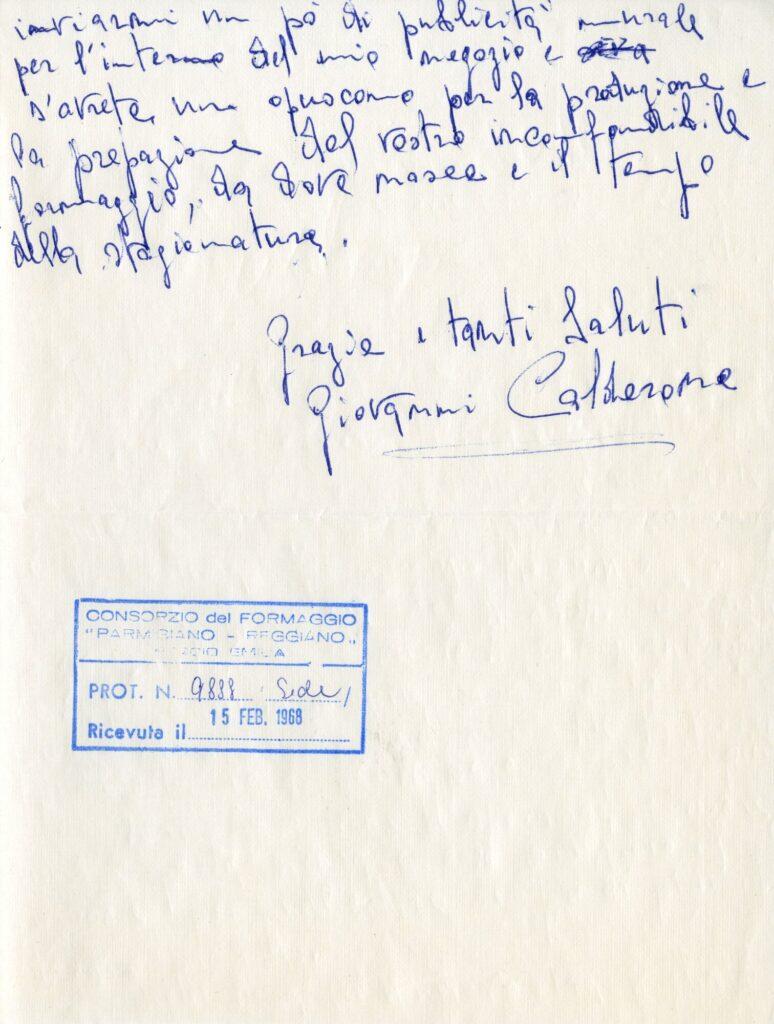 inviarmi un pò di publicità murale
per l'interno del mio negozio e
s'avrete, un opuocomo per la produzione e
la prepazione del vostro inconfondibile
formaggio, da dove nasce e il tempo
della stagionatura.
Grazie e tanti Saluti
Giovanni Calderone
CONSORZIO del FORMAGGIO
"PARMIGIANO - REGGIANO"
REGGIO EMILIA
PROT. N. 9888 Sede/
Ricevuta il 15 FEB. 1968